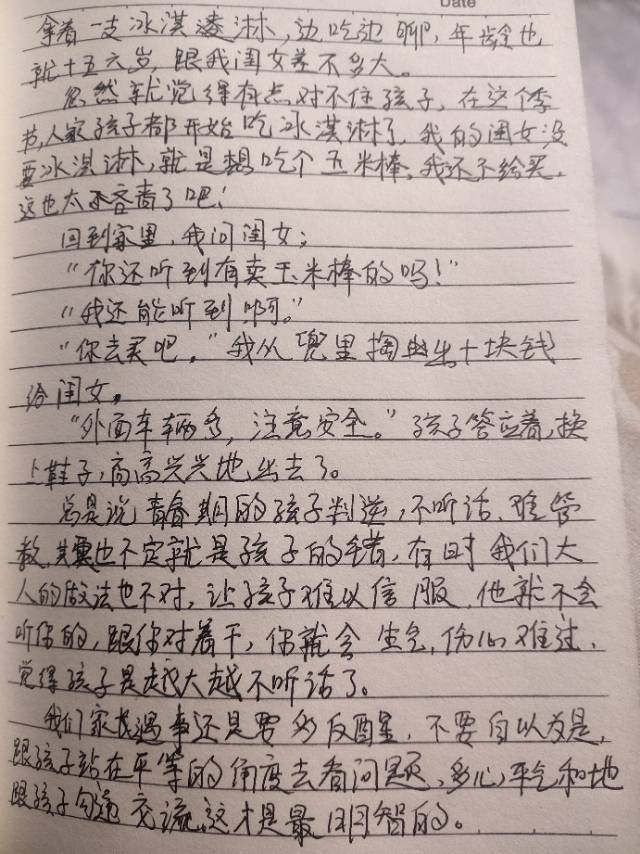 Date
拿着一支冰淇凌淋，边吃边聊，年龄也
就十五六岁，跟我闺女差不多大。
忽然就觉得有点对不住孩子，在这个季
节，人家孩子都开始吃冰淇淋了，我的闺女没
要冰淇淋，就是想吃个玉米棒，我还不给买，
这也太不吝啬了吧！
回到家里，我问闺女：
“你还听到有卖玉米棒的吗！”
“我还能听到啊。”
“你去买吧。”我从兜里掏出十块钱
给闺女。
“外面车辆多，注意安全。”孩子答应着，换
上鞋子，高高兴兴地出去了。
总是说青春期的孩子判逆，不听话、难管
教，其实也不定就是孩子的错，有时我们大
人的做法也不对，让孩子难以信服，他就不会
听你的，跟你对着干，你就会生气，伤心难过，
觉得孩子是越大越不听话了。
我们家长遇事还是要多反醒，不要自以为是，
跟孩子站在平等的角度去看问题，多心平气和地
跟孩子沟通交流，这才是最明智的。